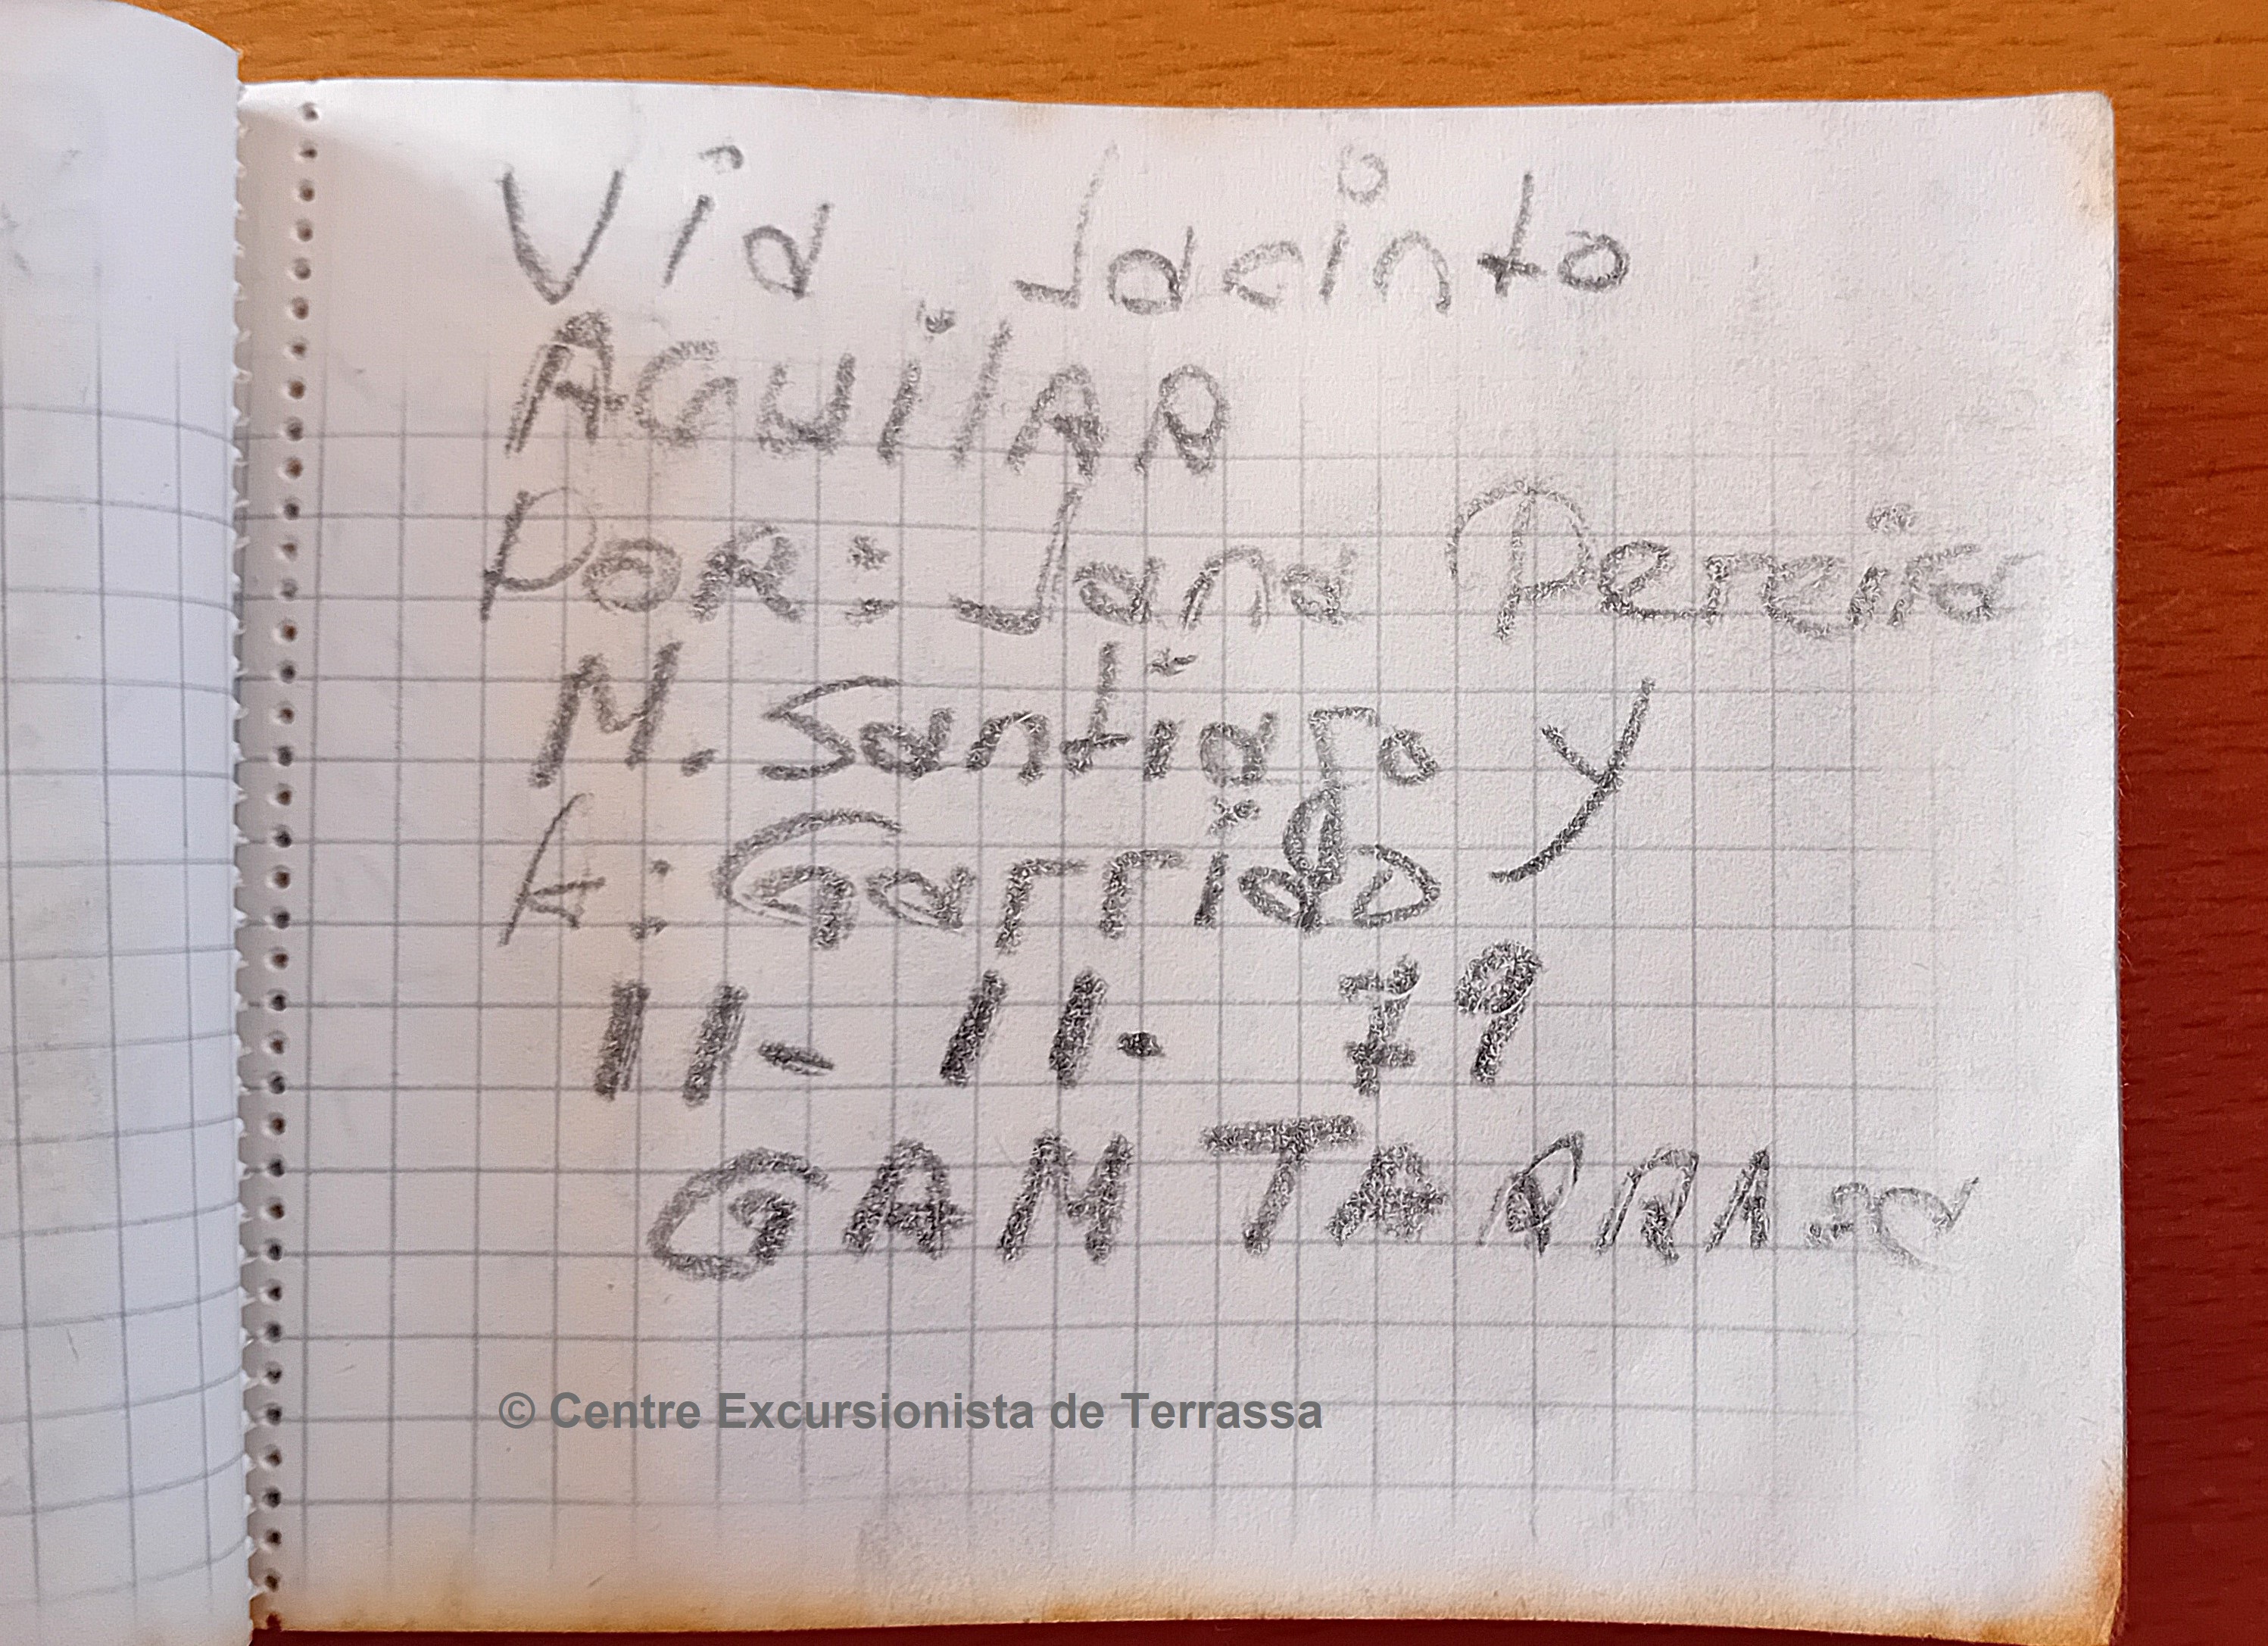 Via Jacinto
AGUilAR
PoR: Jana Pereira
M. Santiago y
A: Garrido
11- 11- 79
GAM
© Centre Excursionista de Terrassa